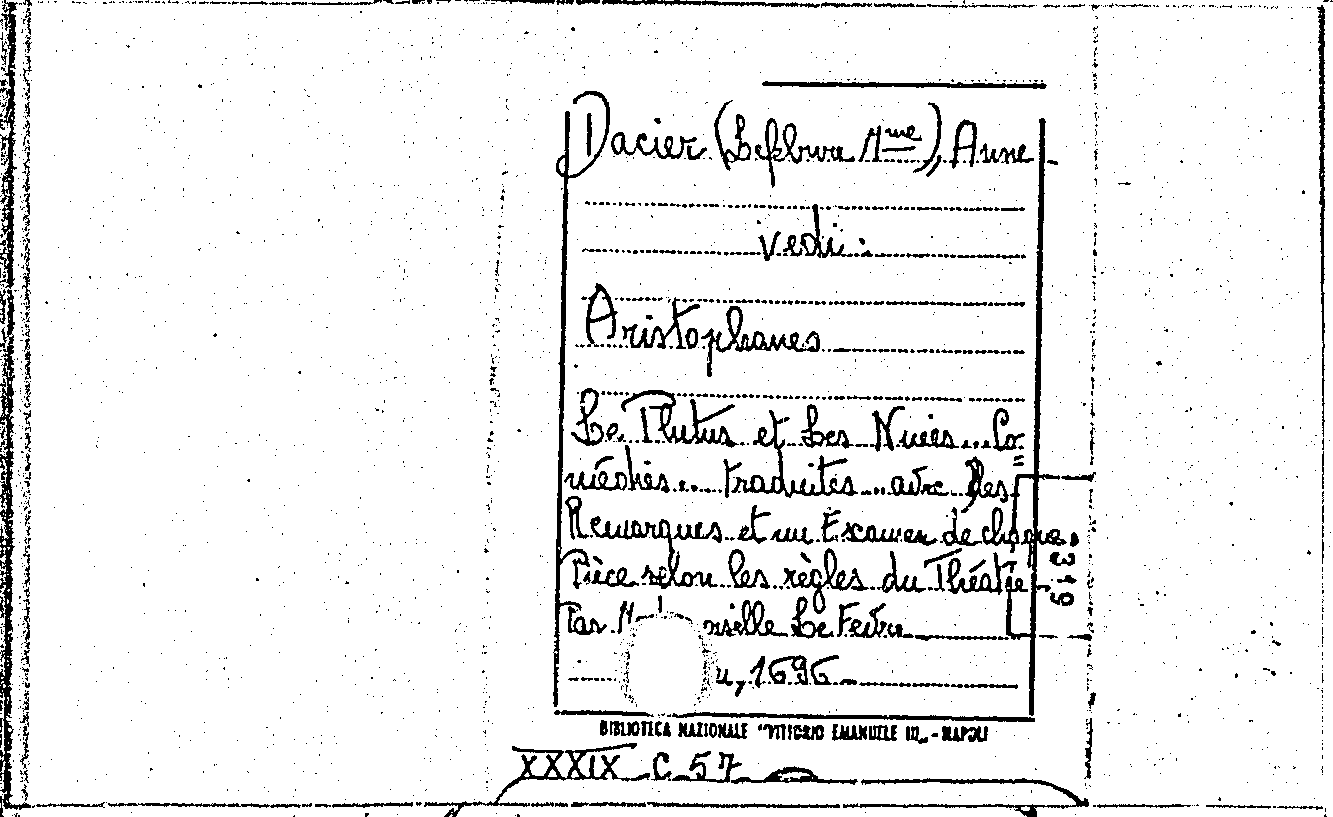 Dacier (Lefebvre Mme), Anne
vedi:
Aristophanes
Le Plutus et Les Nuées... Co=
médies... traduites... avec Des
Remarques et un Examen de chaque
Pièce selon les règles du Théatre
Par selle Le Fevre
1696
319
BIBLIOTECA NAZIONALE "VITTORIO EMANUELE III" - NAPOLI
XXXIX C 57